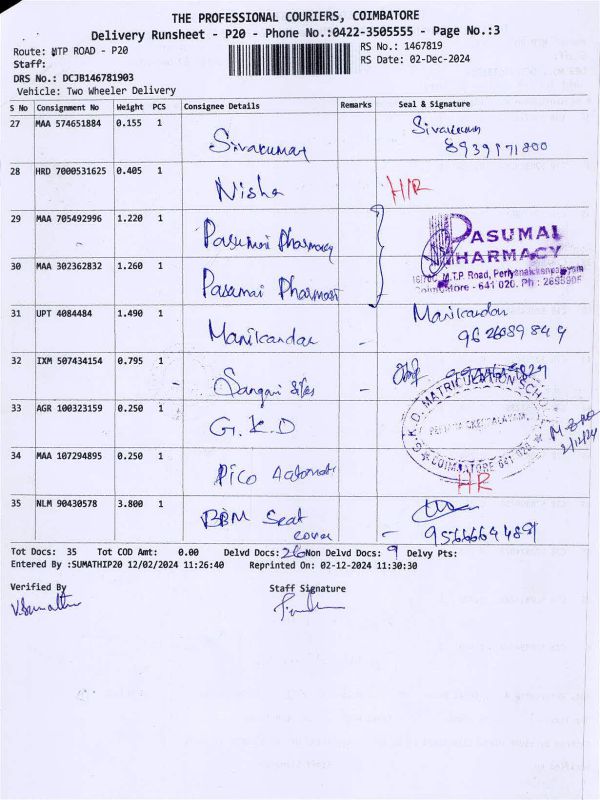 THE PROFESSIONAL COURIERS, COIMBATORE
Delivery Runsheet - P20 - Phone No.:0422-3505555 - Page No.:3
Route: MTP ROAD - P20 RS No.: 1467819
Staff: RS Date: 02-Dec-2024
DRS No.: DCJB146781903
Vehicle: Two Wheeler Delivery
S No Consignment No Weight PCS Consignee Details Remarks Seal & Signature
27 MAA 574651884 0.155 1 Sivakumar Sivakumar
8939171800
28 HRD 7000531625 0.405 1 Nisha H/R
29 MAA 705492996 1.220 1 Pasumai Pharmacy PASUMAI PHARMACY
30 MAA 302362832 1.260 1 Pasumai Pharmacy M.T.P. Road, Periyanaickenpalayam
Coimbatore - 641 020. Ph :
31 UPT 4084484 1.490 1 Manikandan - Manikandan
9626089849
32 IXM 507434154 0.795 1 -
33 AGR 100323159 0.250 1 G.K.D G.K.D. MATRICULATION SCHOOL
PERIYANAICKENPALAYAM,
COIMBATORE 641 020
2/12/24
34 MAA 107294895 0.250 1 Pico Automat HR
35 NLM 90430578 3.800 1 BBM Seat cover -
Tot Docs: 35 Tot COD Amt: 0.00 Delvd Docs: 26 Non Delvd Docs: 9 Delvy Pts:
Entered By :SUMATHIP20 12/02/2024 11:26:40 Reprinted On: 02-12-2024 11:30:30
Verified By Staff Signature
V.Sumathi